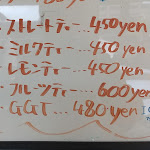 ・ストレートティー…450yen
・ミルクティー…450yen
・レモンティー…450yen
・フルーツティー…600yen
・GGT…480yen